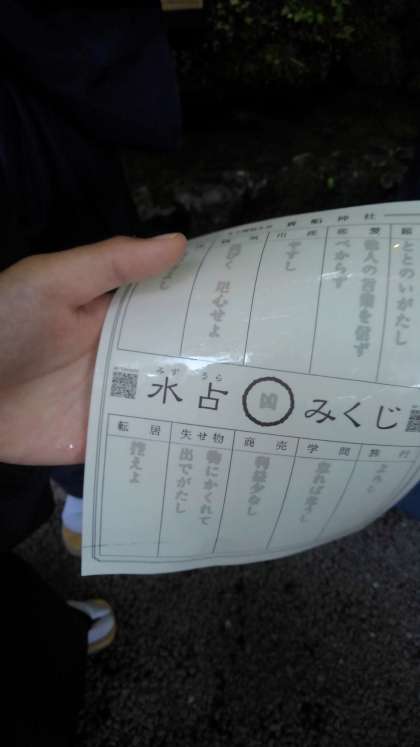 貴船神社
願
ととのいがたし
恋愛
他人の言葉を信ず
べからず
出産
やすし
病気
重く 用心せよ
みず うら
水占
凶
みくじ
旅行
よろし
学問
怠れば危うし
商売
利益少なし
失せ物
物にかくれて
出でがたし
転居
控えよ